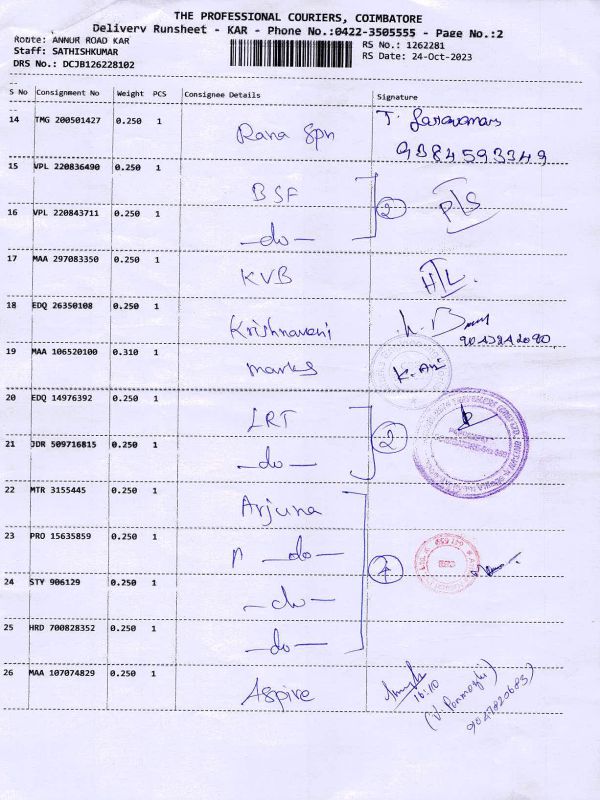 THE PROFESSIONAL COURIERS, COIMBATORE
Delivery Runsheet - KAR - Phone No.:0422-3505555 - Page No.:2
Route: ANNUR ROAD KAR
RS No.: 1262281
Staff: SATHISHKUMAR
RS Date: 24-Oct-2023
DRS No.: DCJB126228102
S No Consignment No Weight PCS Consignee Details Signature
14 TMG 200501427 0.250 1 Rana Spn T. Saravanan
9384593349
15 VPL 220836490 0.250 1 BSF
2 P/S
16 VPL 220843711 0.250 1 —do—
17 MAA 297083350 0.250 1 KVB HTL.
18 EDQ 26350108 0.250 1 Krishnaveni
19 MAA 106520100 0.310 1 marks
20 EDQ 14976392 0.250 1 LRT
2
21 JDR 509716815 0.250 1 —do—
22 MTR 3155445 0.250 1 Arjuna
23 PRO 15635859 0.250 1 —do—
4
24 STY 906129 0.250 1 —do—
25 HRD 700828352 0.250 1 —do—
26 MAA 107074829 0.250 1 Aspire
16:10
(V. Ponmozhi)
9047820683)